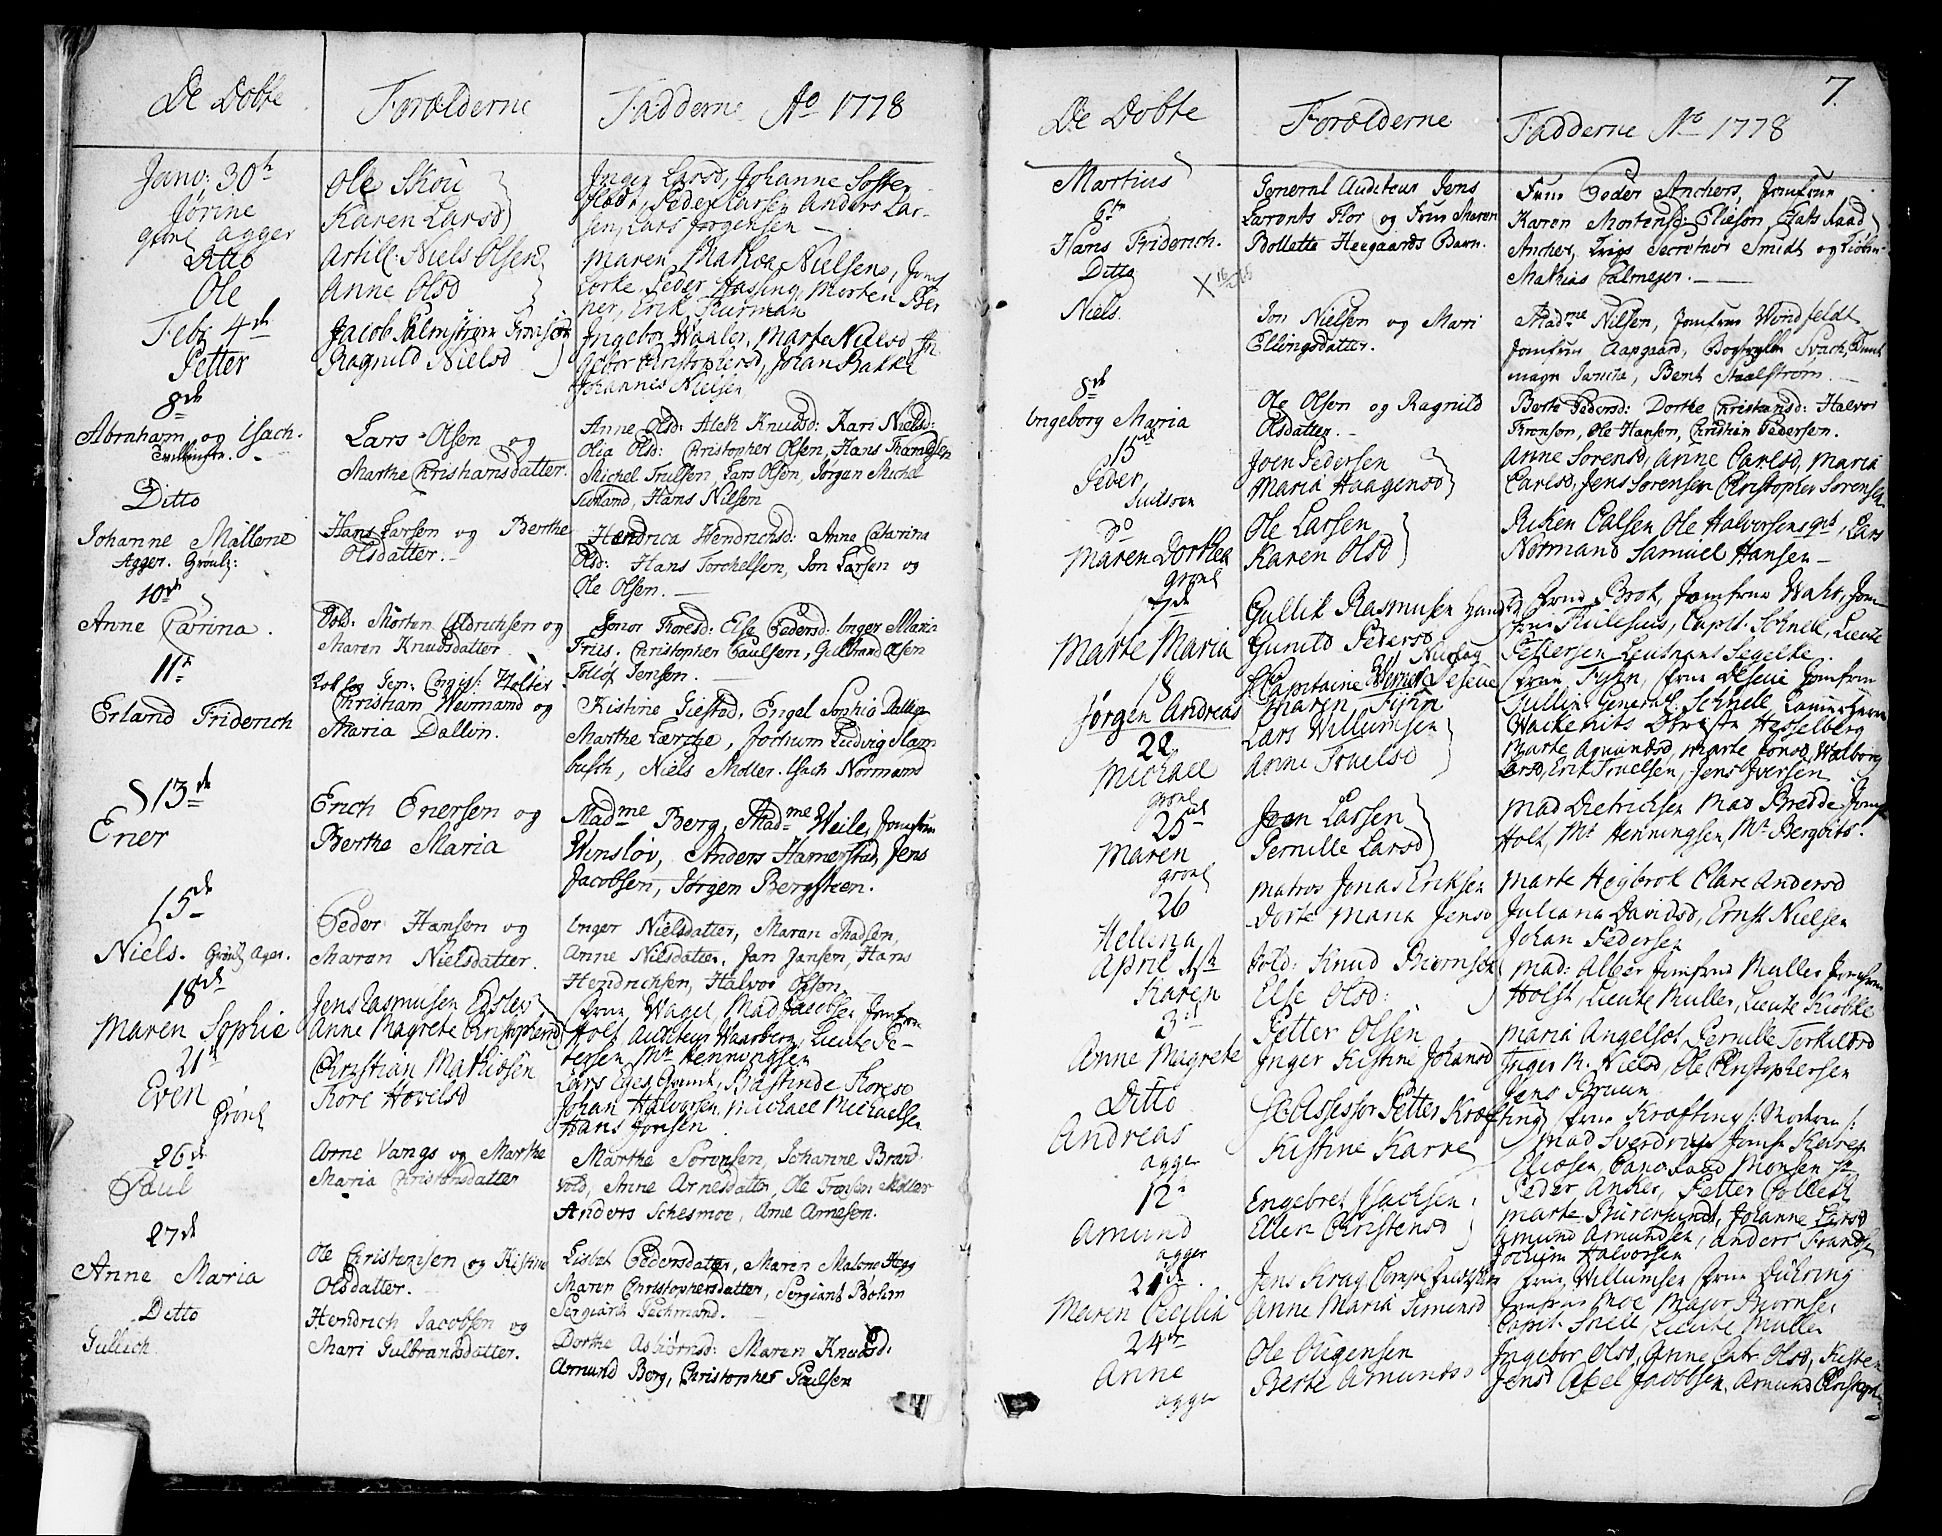 De Døbte
Forælderne
Fadderne Ao 1778
Janv: 30te
Jørine
Grønl Agger
Ole Skou
Karen Larsd
Inger Larsd, Johanne
Peder Larsen Anders Lar-
sen, Lars Jørgensen —
Ditto
Ole
Artill: Niels Olsen
Anne Olsd
Maren, Nielsen, Jens
Peder Hassing, Morten
ner, Erik Furman
Feb: 4de
Petter
Jacob Palmstrøm
Ragnild Nielsd
Ingebor Waaler, Marte Nielsd In
gebor Christophersd, Johan Bakke
Johannes Nielsen
8de
Abraham og Isach.
Tvillinger.
Lars Olsen og
Marthe Christiansdatter.
Anne Olsd: Aleth Knudsd: Kari Nielsd:
Olia Olsd: Christopher Olsen, Hans
Michel Truelsen, Lars Olsen, Jørgen Michel
Hans Nilsen
Ditto
Johanne Mallene
Agger. Grønl:
Hans Larsen og Berthe
Olsdatter. —
Hendrica Hendrichsd: Anne Catarina
Olsd: Hans Torchelsen, Jon Larsen og
Ole Olsen. —
10de
Anne Carina.
Sold. Morten Uldrichsen og
Maren Knudsdatter
Toresd: Else Pedersd: Inger Maria
Fries. Christopher Paulsen, Gulbrand Olsen
Jensen.
11te
Erland Friderich
Holter
Christian Normand og
Maria Dallin.
Kistine Giestad, Engel Sophia Dallin
Marthe Lærche, Jochum Ludvig Ham
busch, Niels Møller. Isach Normand
13de
Ener
Erich Enersen og
Berthe Maria
Madme Berg, Madme Weile, Jomfrue
Winsløv, Anders Hamerstad, Jens
Jacobsen, Jørgen Bergsteen.
15de
Niels. Grønl Ager.
Peder Hansen og
Maren Nielsdatter.
Inger Nielsdatter, Maran Madsen,
Anne Nilsdatter, Jan Jansen, Hans
Hendrichsen, Halvor Olsen
18de
Maren Sophie
Jens Rasmusen
Anne Magrete Christophersd
Frue Wagel, Mad Jacobsen Jomfrue
Holt Auditeur Waarberg, Lieute Pe-
tersen, Mr Henningsen
21te
Even
Grønl
Christian Mathiesen
Tore Hovelsd
Lars Eger, Toresd
Johan Halvorsen, Michael Michaelsen
Hans Jonsen
26de
Paul
Arne Vangs og Marthe
Maria Christensdatter
Marthe Sørensen, Johanne Brand
vold, Anne Arnesdatter, Ole Tronsen Møller
Anders Schesmoe, Arne Arnesen.
27de
Anne Maria
Ole Christensen og Kistine
Olsdatter.
Lisbet Pedersdatter, Maren Malene
Maren Christophersdatter, Sergiant Bøhm
Sergiant
Ditto
Gullich.
Hendrich Jacobsen og
Mari Gulbrandsdatter.
Dorthe Asbiørnsd: Maren Knudsd:
Amund Berg, Christopher Paulsen
7.
De Døbte
Forælderne
Fadderne Ao 1778
Martius
6te
Hans Friderich.
General Auditeur Jens
Laronts Flor og Frue Maren
Bollette Heegaards Barn.
Frue Peder Anchers, Jomfrue
Karen Mortensd: Elieson Etats Raad
Ancher, Krigs Secreteer Smidt og
Mathias Palmeyer. —
Ditto
Niels.
Jon Nielsen og Mari
Ellingsdatter.
Madme Nilsen, Jomfrue Wendfeldt
Jomfrue Aapgaard,
Bent Staalstrøm.
8de
Ingeborg Maria
Ole Olsen og Ragnild
Olsdatter. —
Berte Pedersd: Dorthe Christensd: Halvor
Tronson, Ole Hansen, Christian Pedersen.
15de
Peder
Joen Pedersen
Maria Haagensd
Anne Sørensd, Anne Carlsd, Maria
Carlsd, Jens Sørensen Christopher Sørensen
Do
Maren Dorthea
Grønl
Ole Larsen
Karen Olsd
Ole Halvorsens Lars
Normand Samuel Hansen —
17de
Marte Maria
Gullik Rasmusen
Gunild Pedersd
Frue Brok, Jomfrue
Capit: Schnell, Lieute
Pettersen Leutnant Segelke
18
Jørgen Andreas
Capitaine
Maren Fyhn
Frue Fyhn, Frue Jomfrue
General Schnell,
Hesselberg
22
Michael
Grønl
Lars Willumsen
Anne Truelsd
Marte Amundsd, Marte Jonsd, Walborg
Larsd, Erik Truelsen, Jens Iversen
25de
Maren
Grønl
Joen Larsen
Pernille Larsd
Mad Dietrichsen Mad Bredde Jomf
Holt, Mr Henningsen, Mr Bergvits.
26
Helena
Matros Jonas Eriksen
Dorte Maria Jensd
Marte Høybrot Clare Andersd
Juliana Davidsd, Ernst Nielsen
Johan Pedersen
April 1ste
Karen
Sold: Knud Biørnsen
Else Olsd:
Mad: Alber Jomfrue Muller Jomfrue
Holst, Lieute Muller, Lieute Kiøbke
3de
Anne Magrete
Petter Olsen
Inger Kistine Johansd
Maria Angelsøt, Pernille Torkildsd
Inger N. Nielsd, Ole Christophersen
Jens Bruun
Ditto
Andreas
agger
Assessor Petter Kræfting
Kistine Karre
Frue Kræfting
Mad Sverdrup Jomf
Eliesen, Monsen
Peder Anker, Petter Collett
12te
Amund
agger
Engebret Isachsen
Ellen Christensd
Marte Johanne Larsd
Amund Amundsen, Anders Frandsen
Jochim Halvorsen
21de
Maren Cecilia
Jens Krag
Anne Maria Simensd
Frue Willumsen Frue Dühring
Jomfrue Moe Major Biørnsen
Capit. Lieute Muller
24de
Anne
agger
Ole Ougensen
Berte Amundsd
Ingebor Olsd, Anne Catr. Olsd, Kisten
Jensd Axel Jacobsen, Amund Christoph